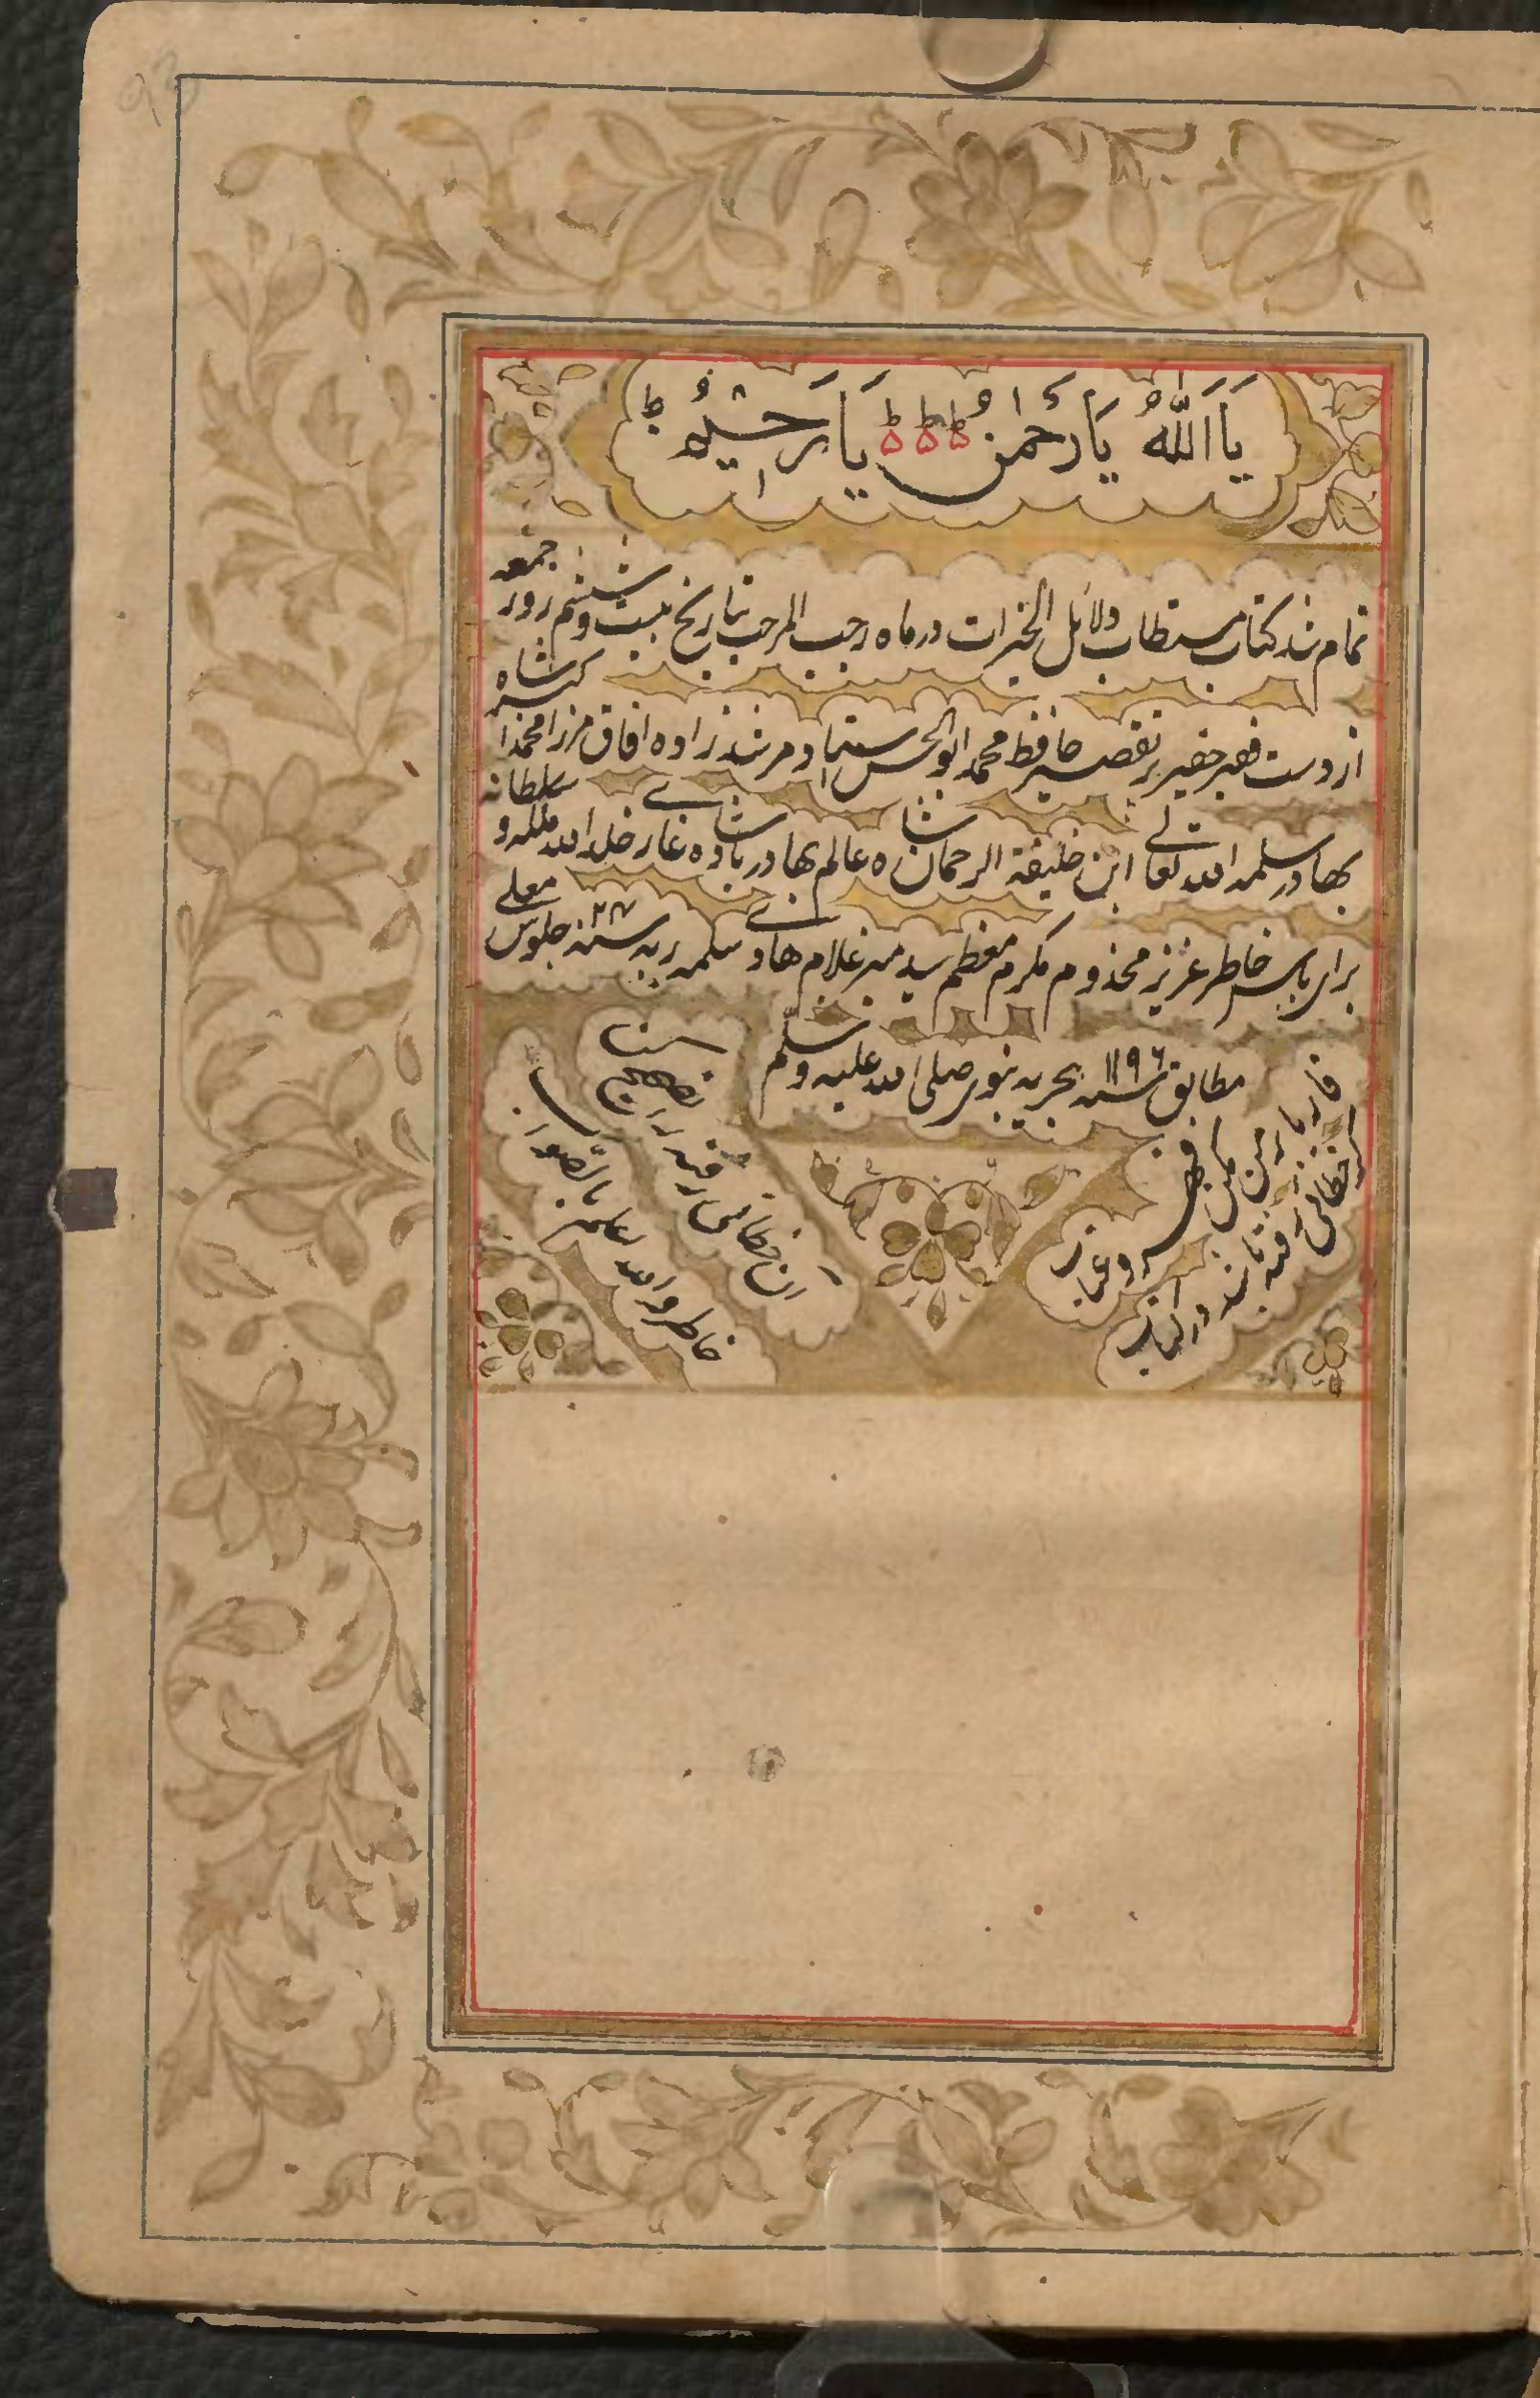 يَا اَللّٰهُ يَا رَحْمٰنُ يَا رَحِيْمُ ط
تمام شد کتاب مستطاب دلائل الخیرات در ماه رجب المرجب بتاریخ بیست و ششم روز جمعه
از دست فقیر حقیر پر تقصیر حافظ محمد ابو الحسن استاد مرشد زاده افاق مرزا محمد اکبر شاه
بهادر سلمه الله تعالی ابن خلیفة الرحمان شاه عالم بهادر بادشاه غازی خلد الله ملکه و سلطانه
برای پاس خاطر عزیز مخدوم مکرم معظم سید میر غلام هادی سلمه ربه سنه ۲۴ جلوس معلی
مطابق سنه ۱۱۹۶ هجریه نبوی صلی الله علیه و سلم
قاریا بر من مکن قهر و عتاب
گر خطائی رفته باشد در کتاب
ان خطای رفته را تصحیح